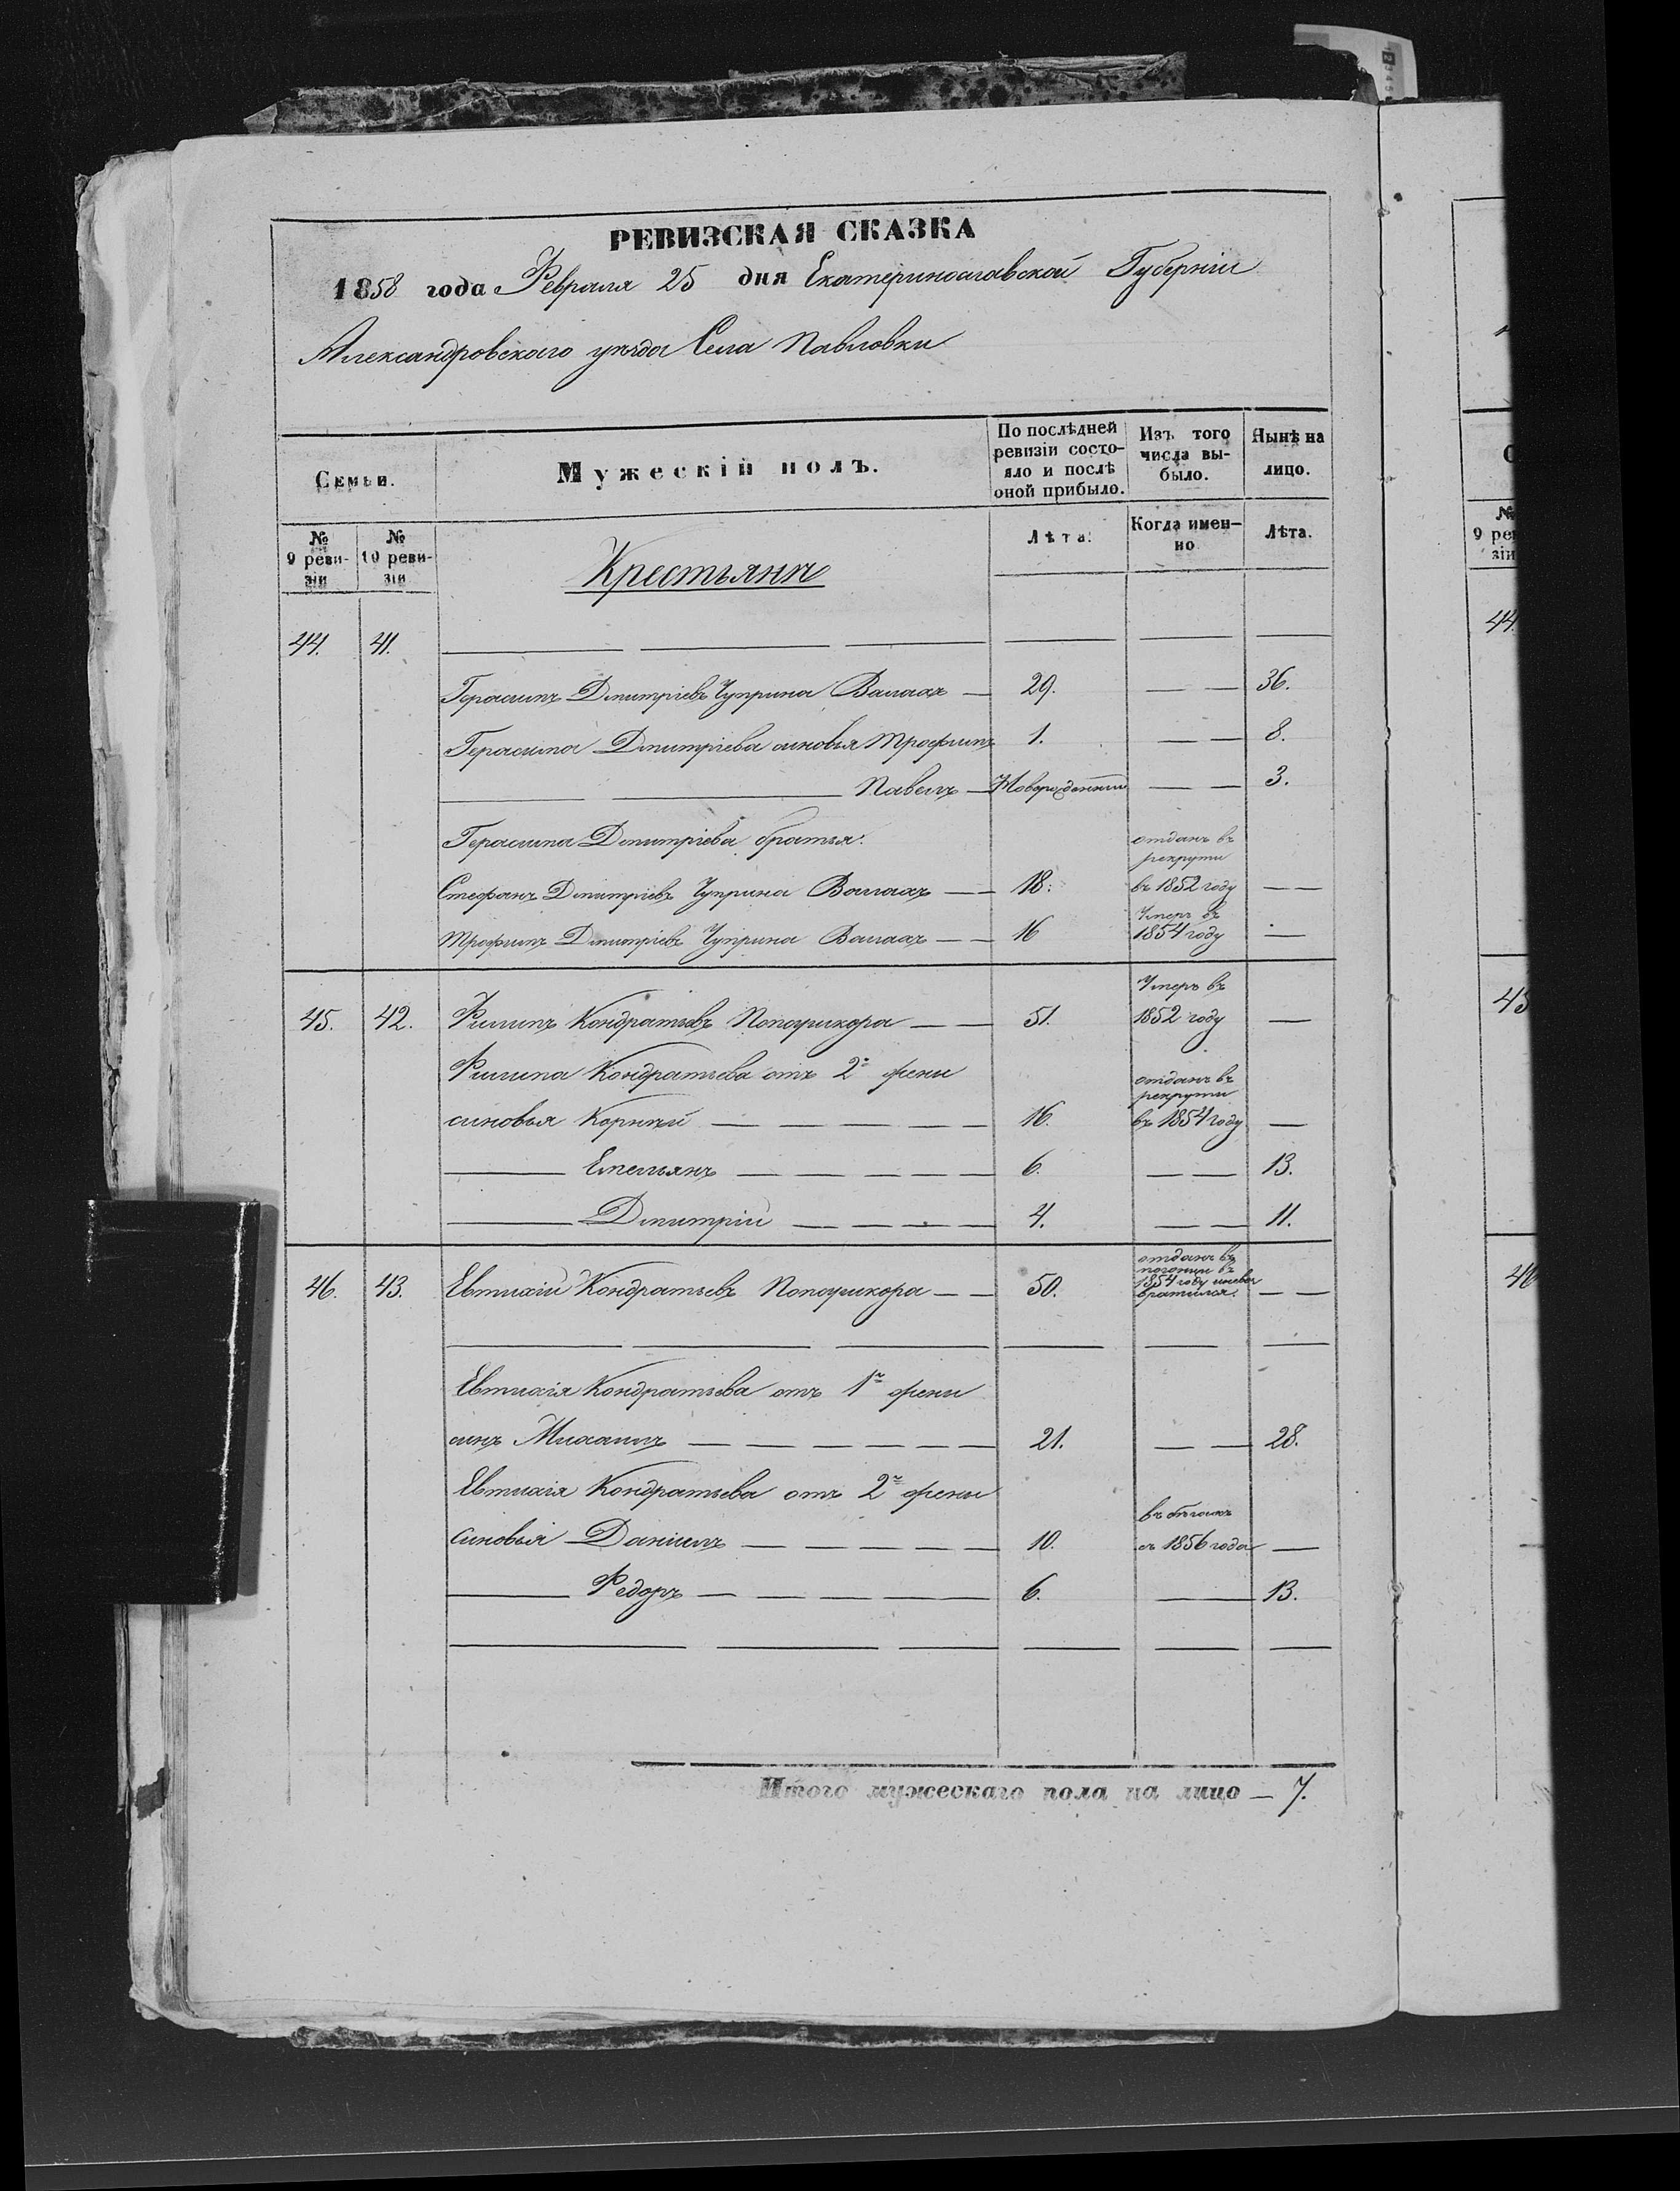 РЕВИЗСКАЯ СКАЗКА
1858 года Февраля 25 дня Екатеринославской Губерніи
Александровскаго уѣзда Села Павловки
Семьи.
Мужескій полъ.
По послѣдней ревизіи состояло и послѣ оной прибыло.
Изъ того числа выбыло.
Нынѣ на лицо.
№ 9 ревизіи
№ 10 ревизіи
Крестьяне
Лѣта.
Когда именно
Лѣта.
44. 41.
Герасимъ Дмитріевъ Чуприна Валахъ — 29. — — 36.
Герасима Дмитріева сыновья Трофимъ 1. — — 8.
Павелъ — Новорожденный — — 3.
Герасима Дмитріева братья:
Стефанъ Дмитріевъ Чуприна Валахъ — — 18. отданъ въ рекруты въ 1852 году — —
Трофимъ Дмитріевъ Чуприна Валахъ — — 16 Умеръ въ 1854 году —
45. 42. Филипъ Кондратьевъ — — 51. Умеръ въ 1852 году —
Филипа Кондратьева отъ 2й жены
сыновья Корнѣй — — — — — 16. отданъ въ рекруты въ 1854 году —
Емельянъ — — — — — 6. — — 13.
Дмитрій — — — — 4. — — 11.
46. 43. Евтихій Кондратьевъ — — 50. отданъ въ погонцы въ 1854 году вратился. — —
Евтихія Кондратьева отъ 1й жены
сынъ Михаилъ — — — — — — 21. — — 28.
Евтихія Кондратьева отъ 2й жены
сыновья Даніилъ — — — — — 10. въ бѣгахъ съ 1856 года —
Федоръ — — — — — 6. — 13.
Итого мужескаго пола на лицо — 7.
9 реви
зіи
44.
45
46